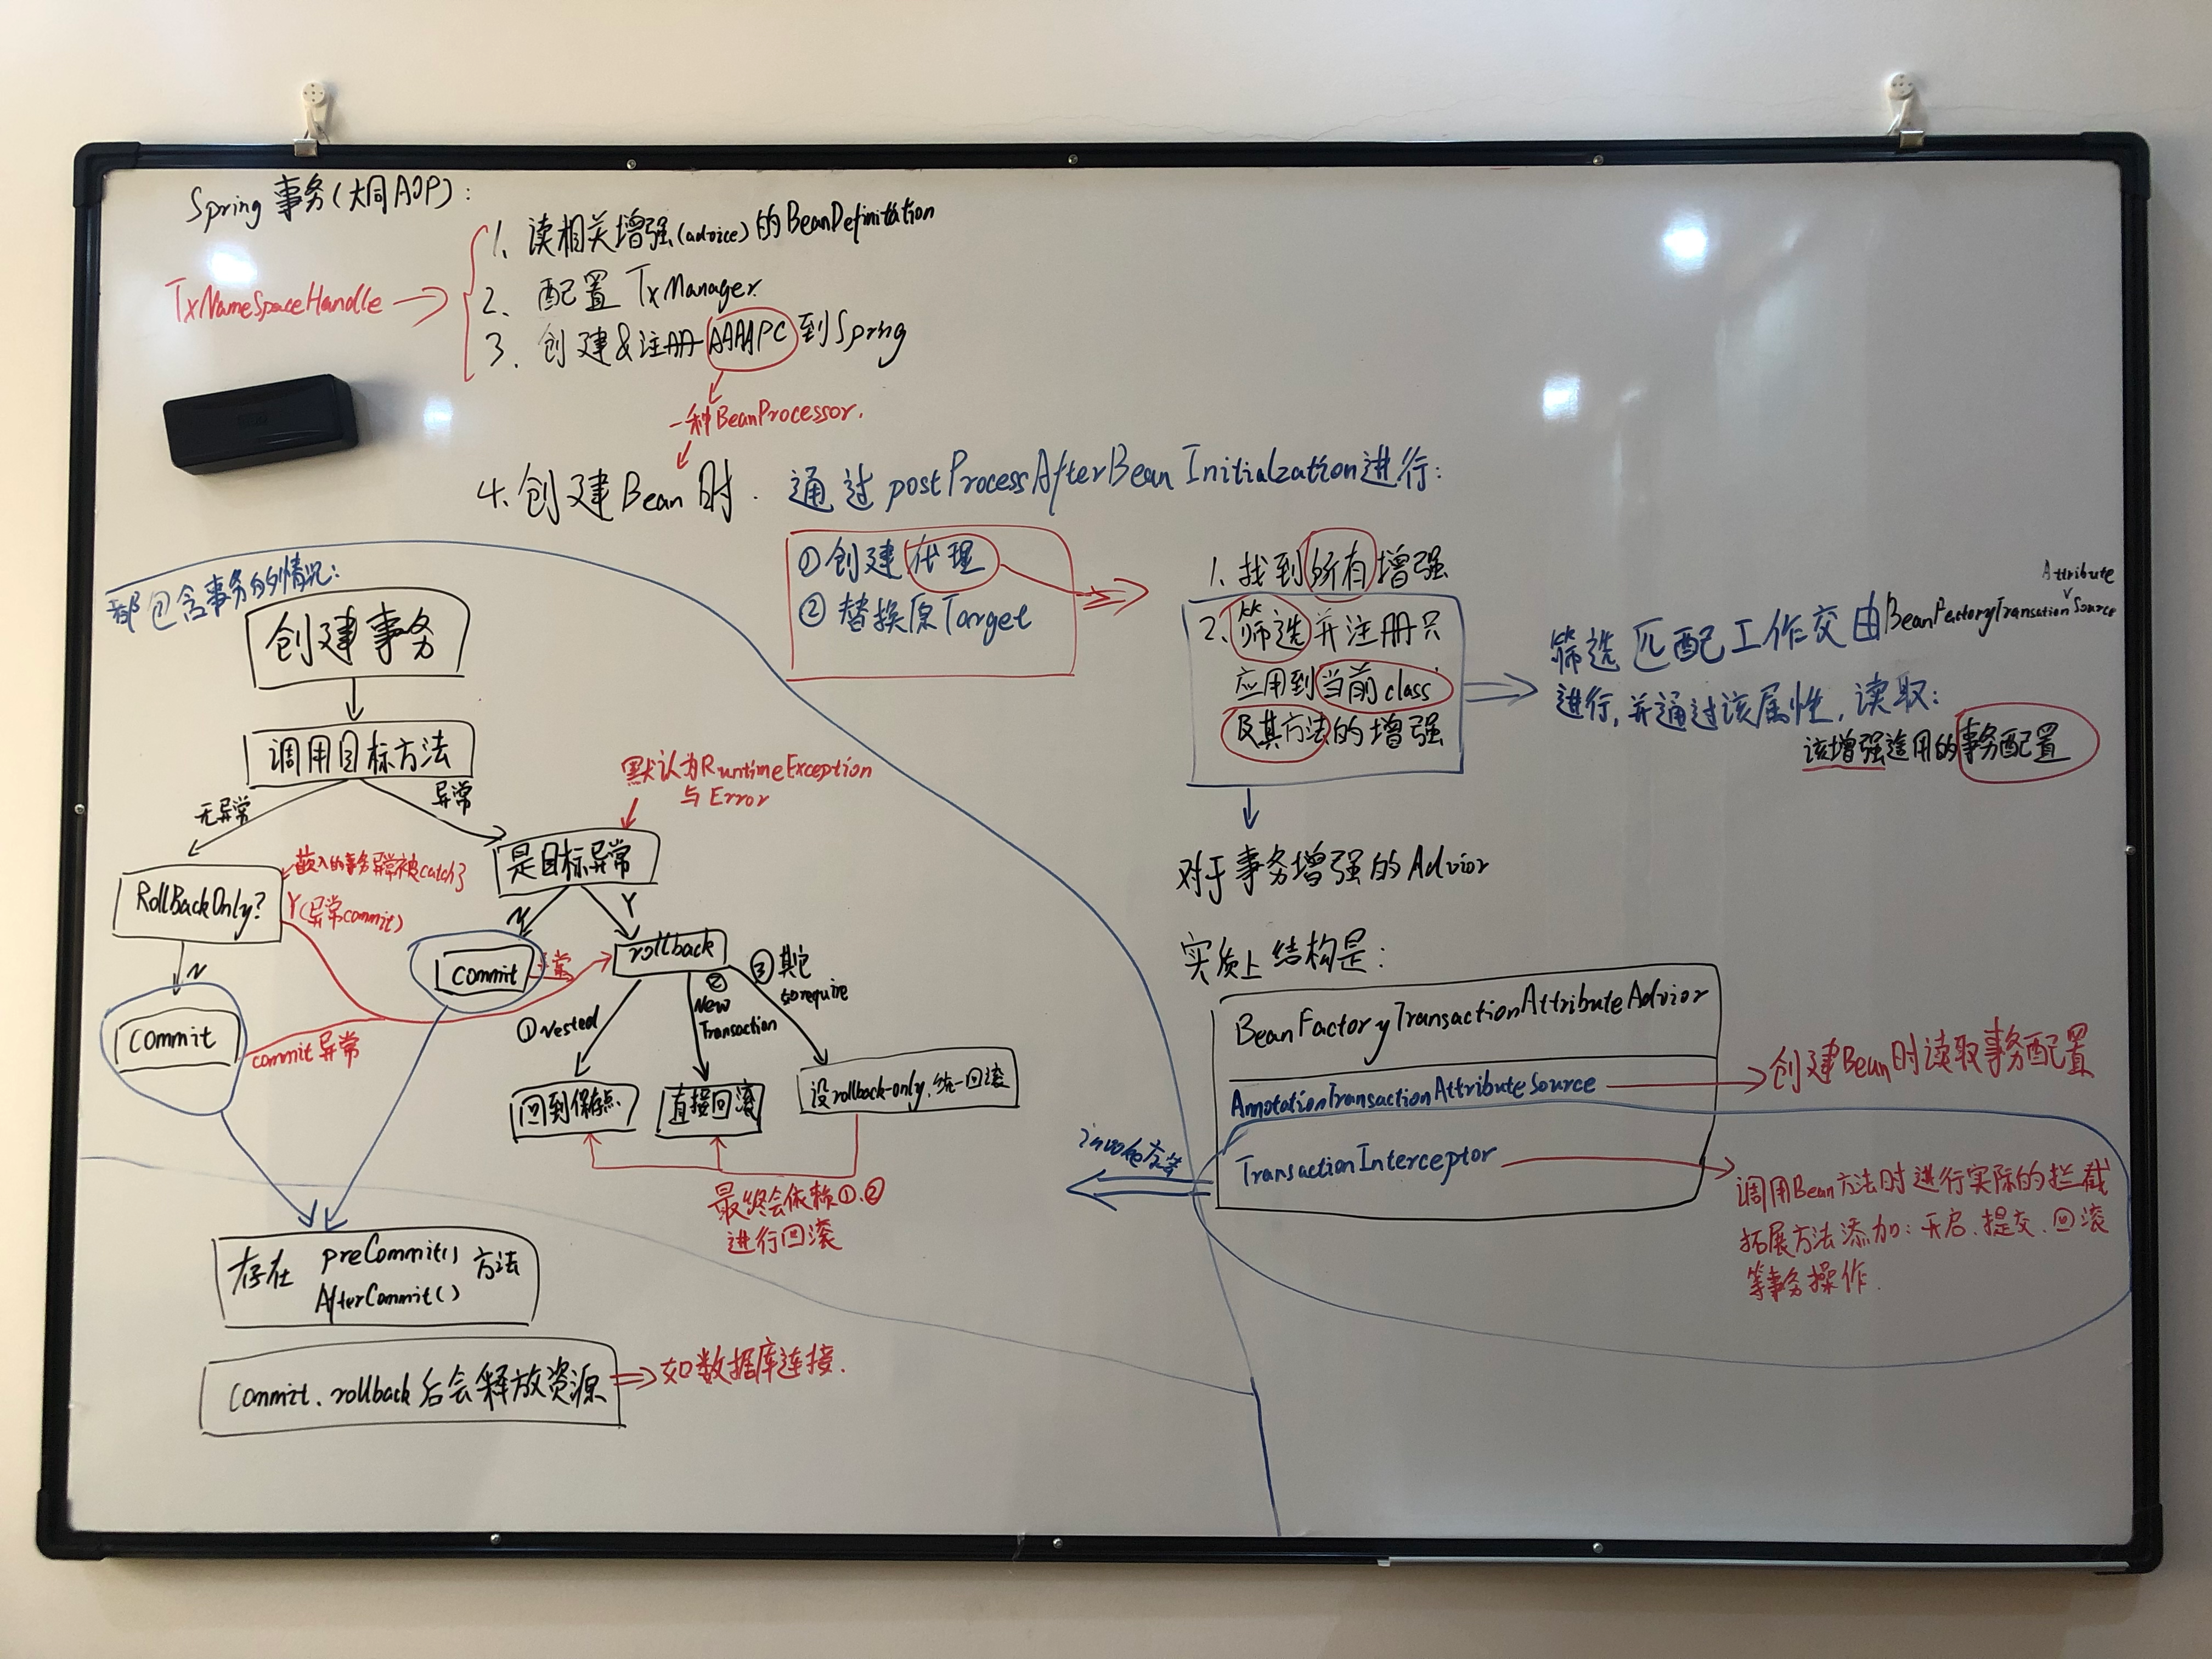 Spring 事务(大同AOP):
TxNameSpaceHandle
1. 读相关增强(advice)的BeanDefinitation
2. 配置 TxManager.
3. 创建&注册AAAAPC到Spring
一种BeanProcessor.
4. 创建Bean时. 通过postProcessAfterBeanInitialzation进行:
①创建代理
②替换原Target
1. 找到所有增强
2. 筛选并注册只
应用到当前class
及其方法的增强
筛选匹配工作交由BeanFactoryTransationSource
Attribute
进行,并通过该属性,读取:
该增强适用的事务配置
对于事务增强的Advior
实质上结构是:
BeanFactoryTransactionAttributeAdvior
AnnotationTransactionAttributeSource
创建Bean时读取事务配置
TransactionInterceptor
调用Bean方法时进行实际的拦截
拓展方法添加:开启.提交.回滚
等事务操作.
invoke方法
都包含事务的情况:
创建事务
调用目标方法
无异常
异常
默认为RuntimeException
与Error
是目标异常
RollBackOnly?
嵌入的事务异常被catch了
Y(异常commit)
N
Y
N
commit
异常
rollback
commit
commit异常
①Nested
②
New
Transaction
③其它
如require
回到保存点
直接回滚
设rollback-only.统一回滚
最终会依赖①、②
进行回滚
存在 preCommit() 方法
AfterCommit()
commit、rollback后会释放资源
如数据库连接.